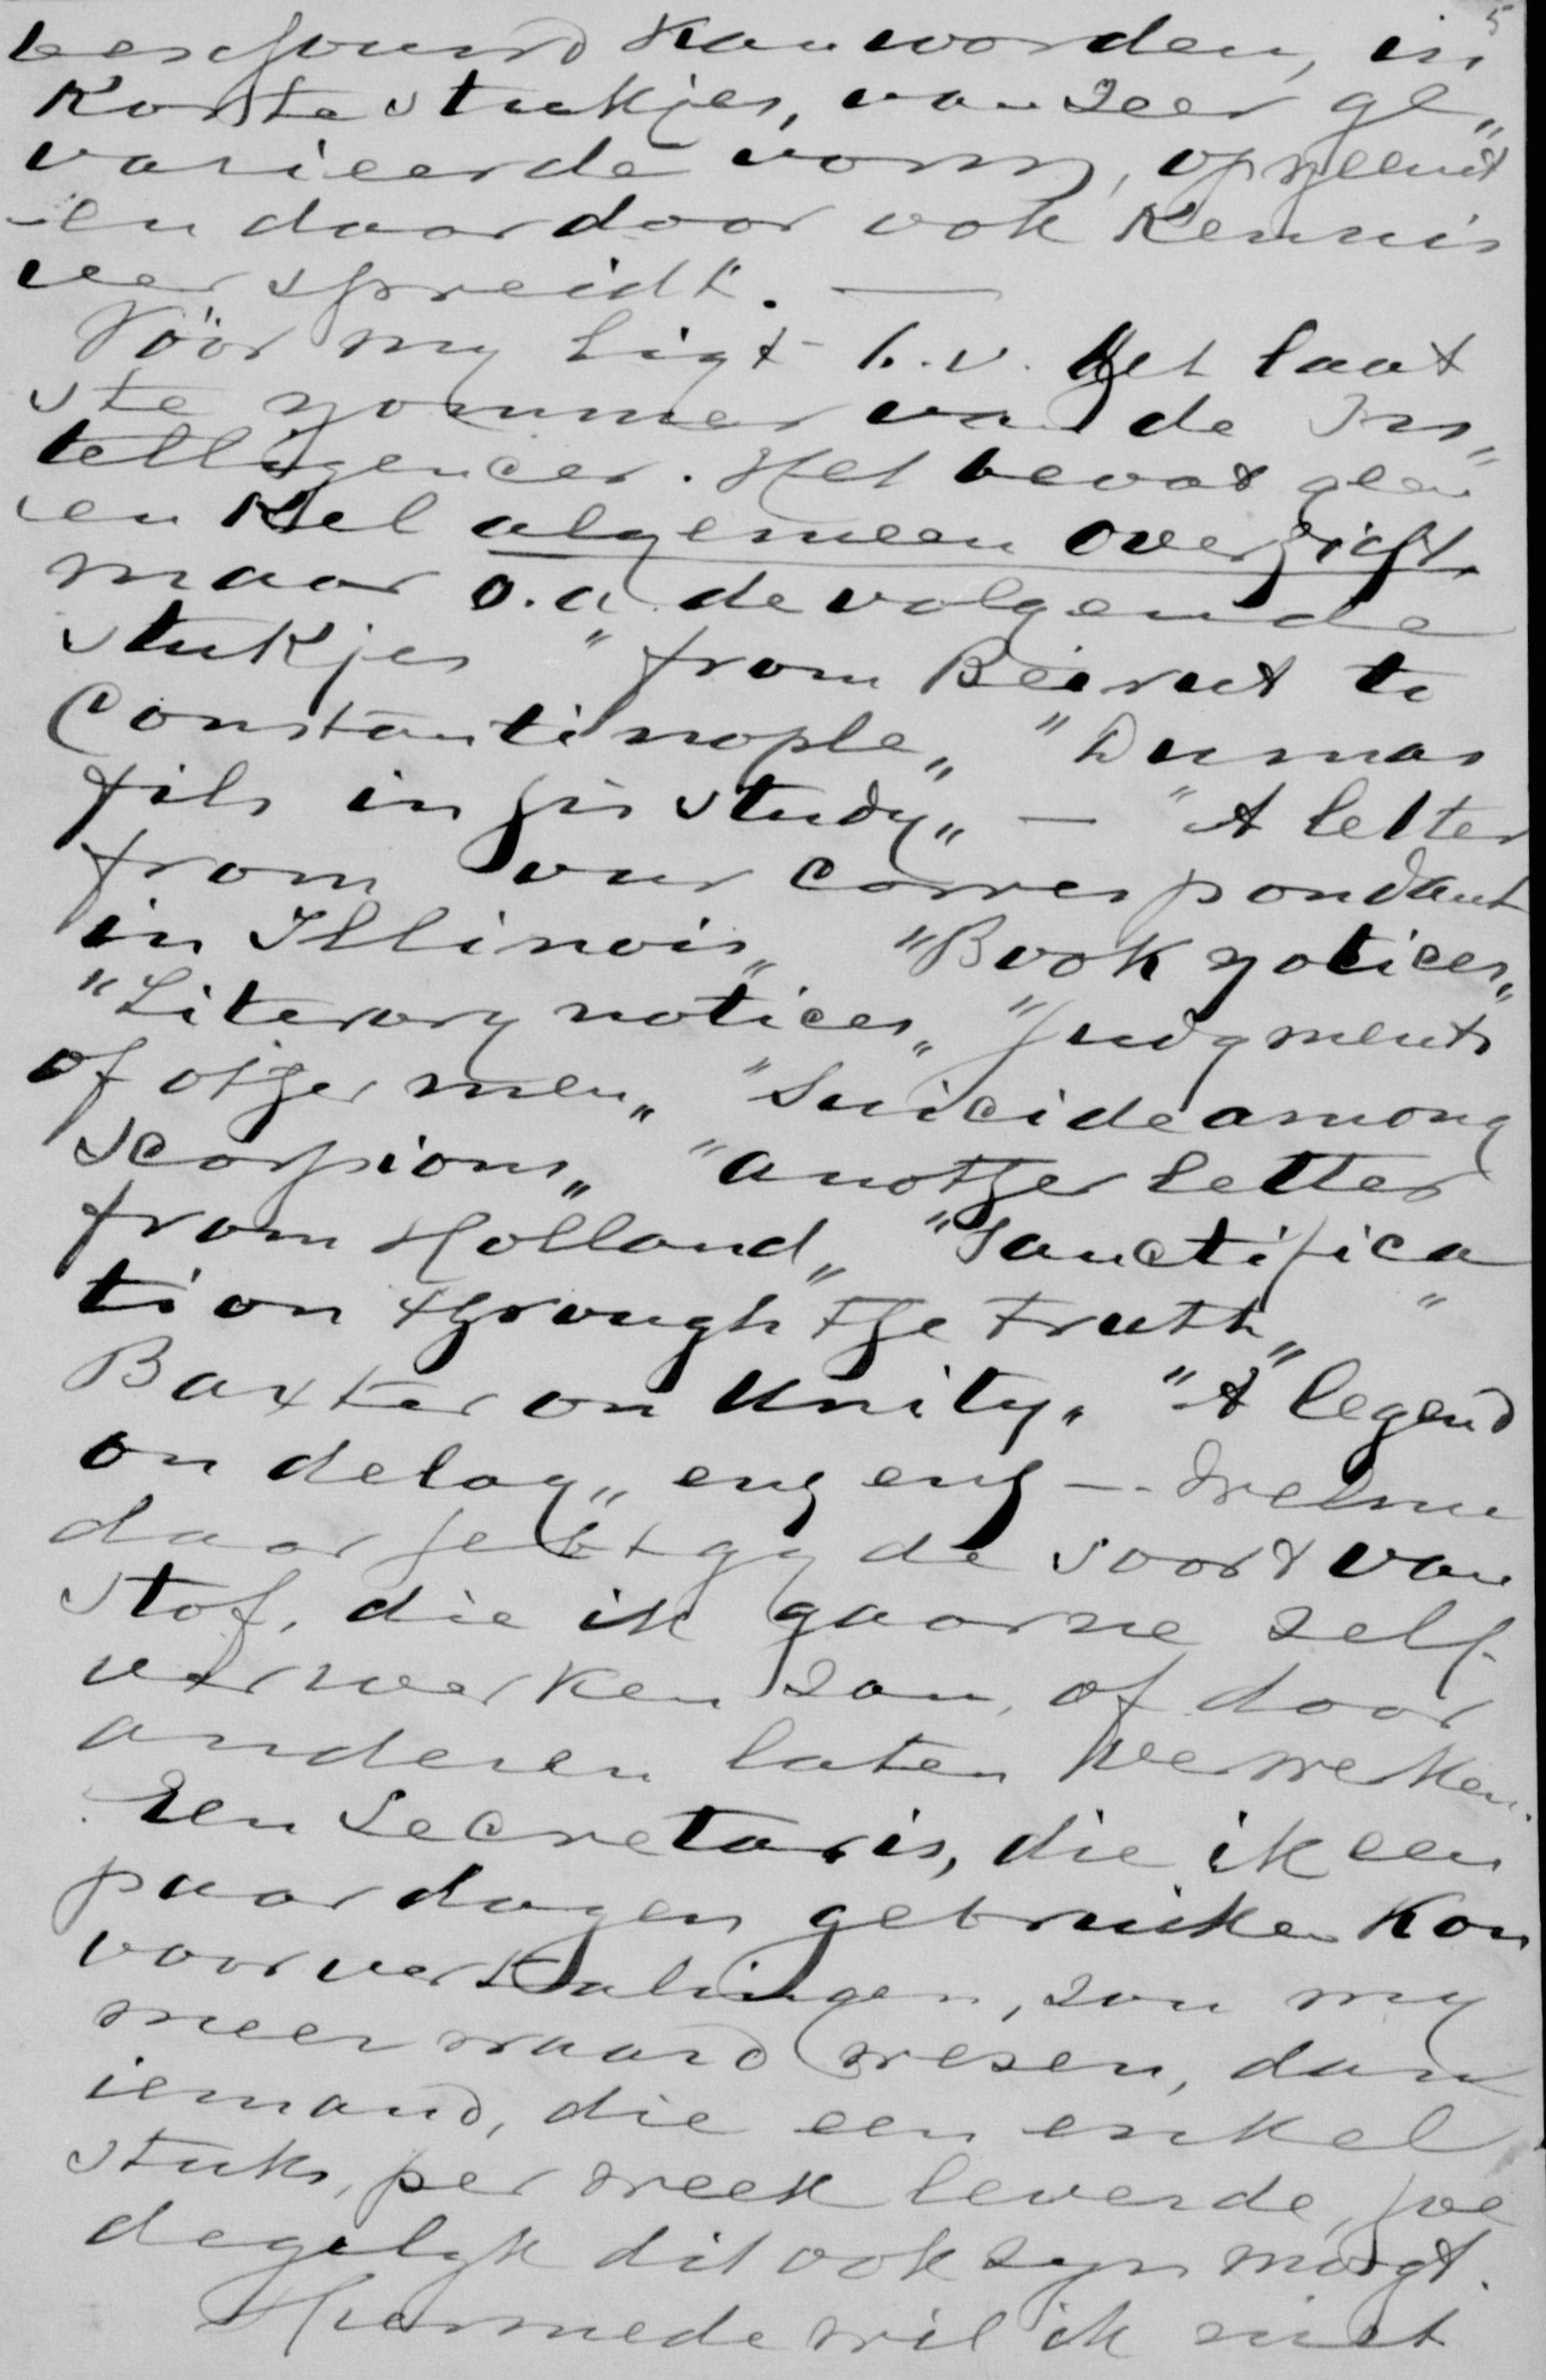 5
beschouwd kan worden, in
Korte stukjes, van zeer ge„
varieerde vorm, opneemt
en daardoor ook Kennis
verspreidt. —
Vóór my ligt b.v. het laat
ste nommer van de In„
telligencer. Het bevat geen
enkel algemeen overzicht,
maar o.a. de volgende
stukjes "from Beirut to
Constantinople„ "Dumas
fils in his study„ — "A letter
from our correspondant
in Illinois„ "Book notices„
"Literary notices„ "Judgments
of other men„ "Suicide among
Scorpions„ "another letter
from Holland„ "Sanctifica„
tion through the truth„
Baxter on Unity„ "A legend
on delay„ enz enz — Welnu
daar hebt gy de soort van
stof, die ik gaarne zelf
verwerken zou, of door
anderen laten verwerken.
Een Secretaris, die ik een
paar dagen gebruiken Kon
voor vertalingen, zou my
meer waard wezen, dan
iemand, die een enkel
stuk, per week leverde, hoe
degelyk dit ook zyn mogt.
Hiermede wil ik niet